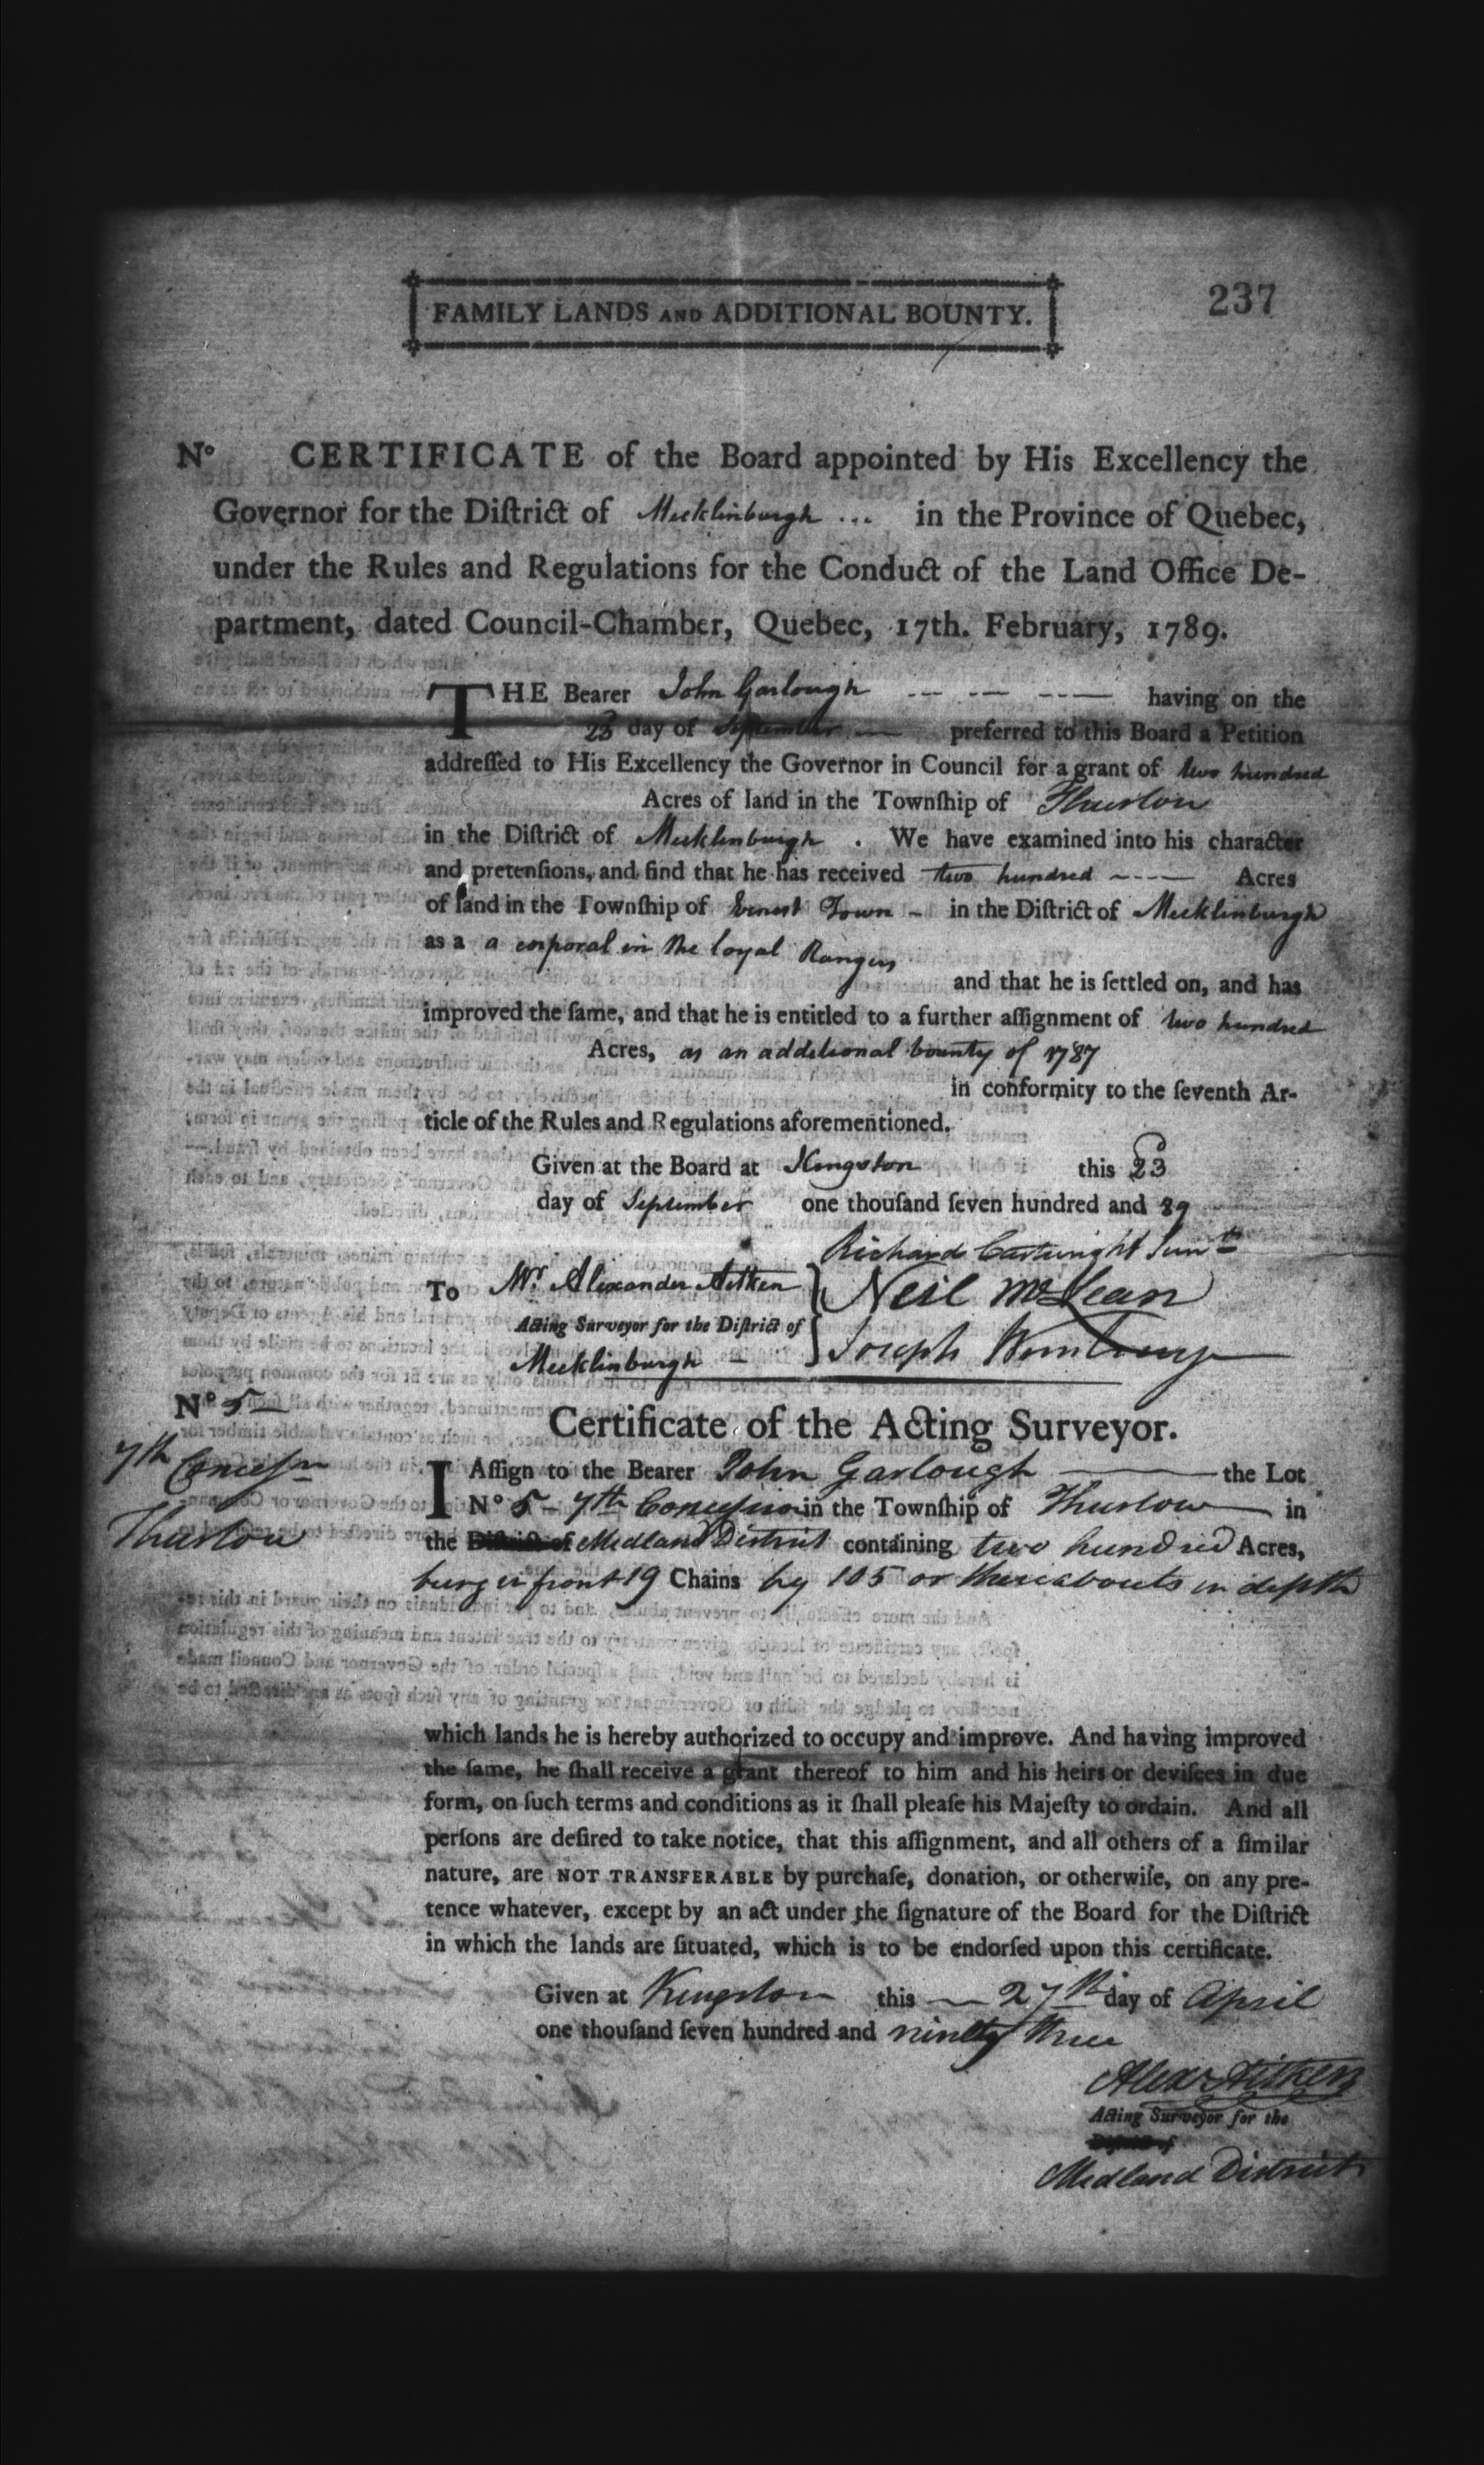 FAMILY LANDS AND ADDITIONAL BOUNTY.
237
No CERTIFICATE of the Board appointed by His Excellency the
Governor for the Diſtrict of Mecklinburgh ... in the Province of Quebec,
under the Rules and Regulations for the Conduct of the Land Office De-
partment, dated Council-Chamber, Quebec, 17th. February, 1789.
THE Bearer John Garlough --- --- ---- having on the
23 day of September — preferred to this Board a Petition
addreſſed to His Excellency the Governor in Council for a grant of two hundred
Acres of land in the Townſhip of Thurlow
in the Diſtrict of Mecklinburgh . We have examined into his character
and pretenſions, and find that he has received two hundred ---- Acres
of land in the Townſhip of Ernest Town - in the Diſtrict of Mecklinburgh
as a a corporal in the loyal Rangers
and that he is ſettled on, and has
improved the ſame, and that he is entitled to a further aſſignment of two hundred
Acres, as an additional bounty of 1787
in conformity to the ſeventh Ar-
ticle of the Rules and Regulations aforementioned.
Given at the Board at Kingston this 23
day of September one thouſand ſeven hundred and 89
Richard Cartwright Junr
To Mr Alexander Aitken Neil McLean
Acting Surveyor for the Diſtrict of
Mecklinburgh - Joseph
No 5 —
Certificate of the Acting Surveyor.
7th Concessn
Thurlow
I Aſſign to the Bearer John Garlough —— the Lot
No 5 - 7th Concession in the Townſhip of Thurlow — in
the Diſtrict of Midland District containing two hundred Acres,
being in front 19 Chains by 105 or thereabouts in depth
which lands he is hereby authorized to occupy and improve. And having improved
the ſame, he ſhall receive a grant thereof to him and his heirs or deviſees in due
form, on ſuch terms and conditions as it ſhall pleaſe his Majeſty to ordain. And all
perſons are deſired to take notice, that this aſſignment, and all others of a ſimilar
nature, are NOT TRANSFERABLE by purchaſe, donation, or otherwiſe, on any pre-
tence whatever, except by an act under the ſignature of the Board for the Diſtrict
in which the lands are ſituated, which is to be endorſed upon this certificate.
Given at Kingston this — 27th day of April
one thouſand ſeven hundred and ninety three
Alexr Aitken
Acting Surveyor for the
Diſtrict of
Midland District